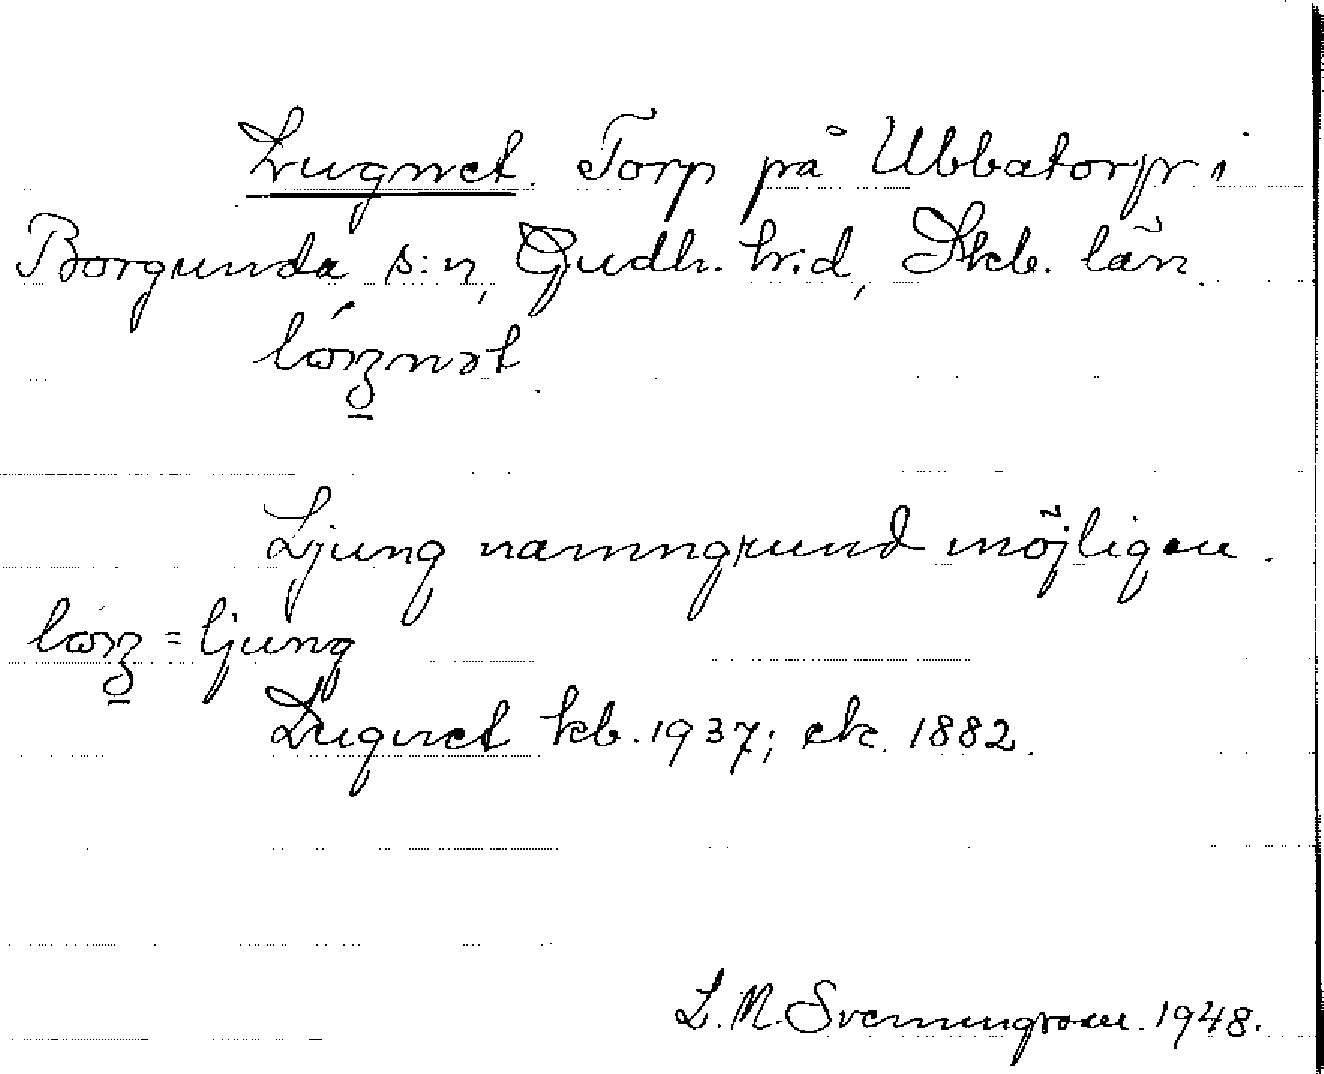 Lugnet. Torp på Ubbatorp i
Borgunda s:n, Gudh. h:d, Skb. län.
Ljung namngrund möjligen.
= ljung
Lugnet kb. 1937; ek. 1882.
L. N. Svenungsson. 1948.